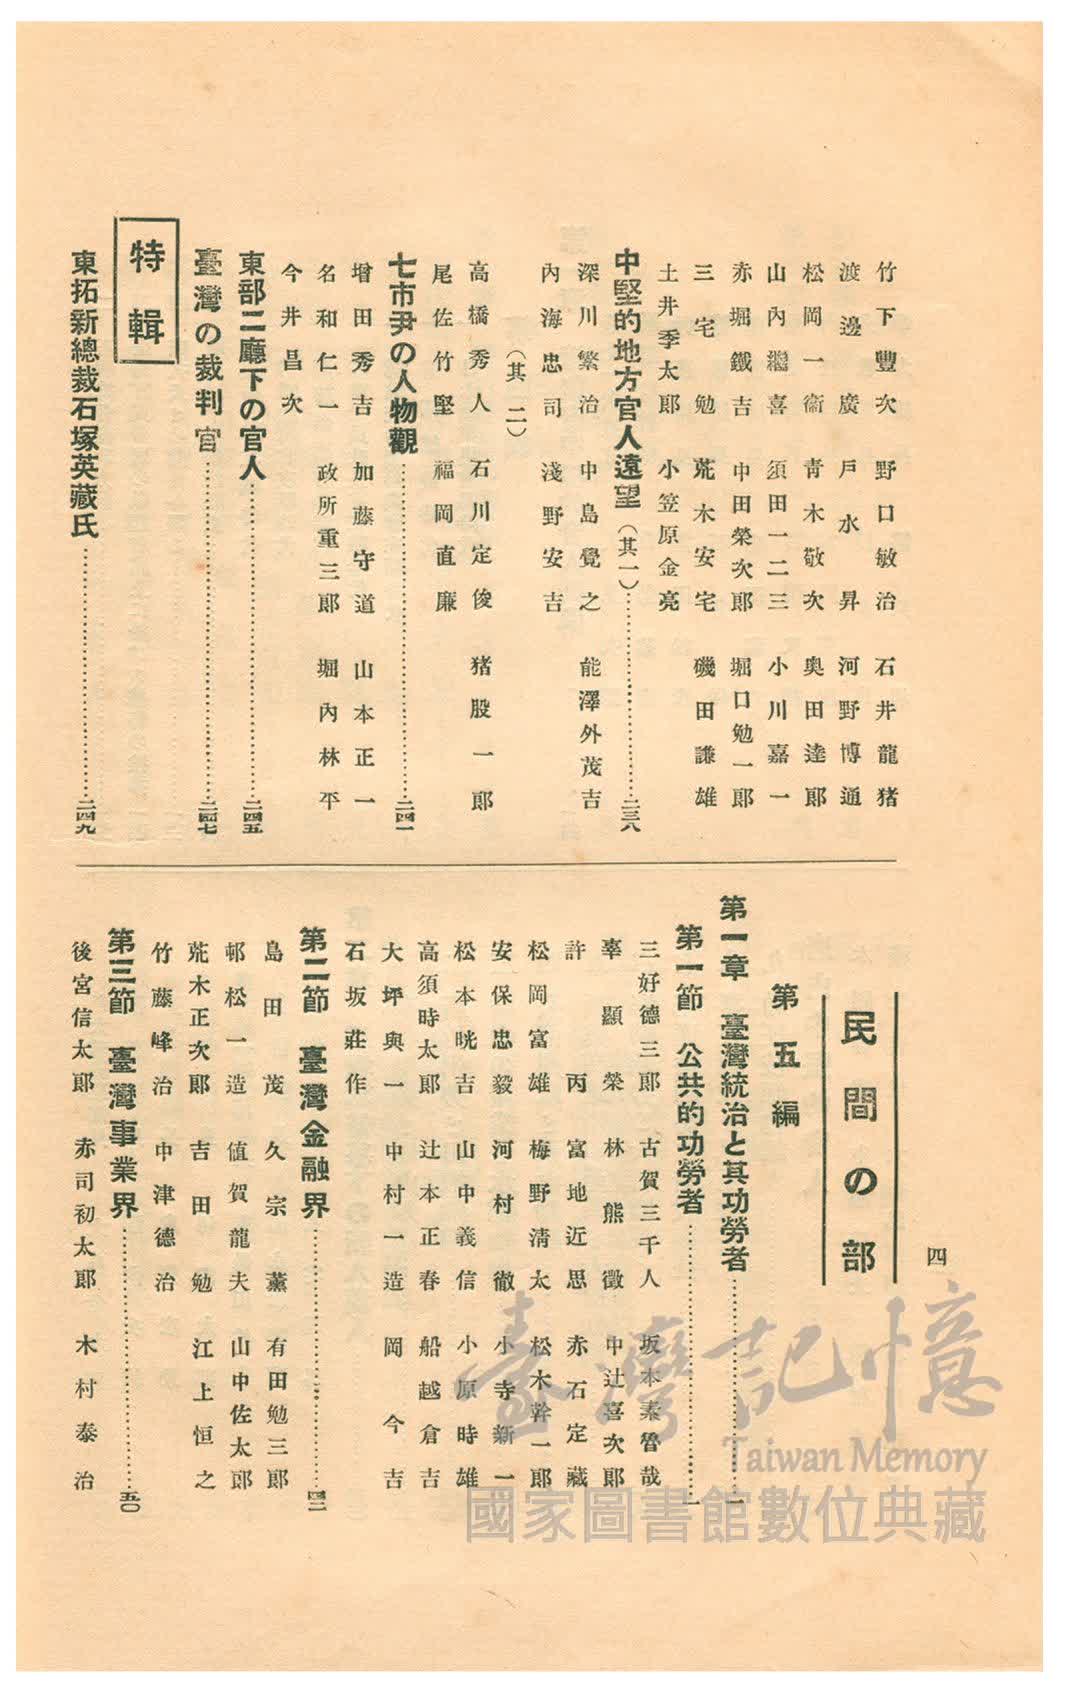 四
竹下豐次 野口敏治 石井龍猪
渡邊廣 戶水昇 河野博通
松岡一衞 靑木敬次 奧田達郞
山內繼喜 須田一二三 小川嘉一
赤堀鐵吉 中田榮次郞 堀口勉一郞
三宅勉 荒木安宅 磯田謙雄
土井季太郞 小笠原金亮
中堅的地方官人遠望(其一)……二三八
深川繁治 中島覺之 能澤外茂吉
內海忠司 淺野安吉
(其二)
高橋秀人 石川定俊 猪股一郞
尾佐竹堅 福岡直廉
七市尹の人物觀……二四一
增田秀吉 加藤守道 山本正一
名和仁一 政所重三郞 堀內林平
今井昌次
東部二廳下の官人……二四五
臺灣の裁判官……二四七
特輯
東拓新總裁石塚英藏氏……二四九
民間の部
第五編
第一章 臺灣統治と其功勞者……一
第一節 公共的功勞者……一
三好德三郞 古賀三千人 坂本素魯哉
辜顯榮 林熊徵 中辻喜次郞
許丙 富地近思 赤石定藏
松岡富雄 梅野淸太 松木幹一郞
安保忠毅 河村徹 小寺新一
松本晄吉 山中義信 小原時雄
高須時太郞 辻本正春 船越倉吉
大坪與一 中村一造 岡今吉
石坂莊作
第二節 臺灣金融界……四二
島田茂 久宗董 有田勉三郞
邨松一造 値賀龍夫 山中佐太郞
荒木正次郞 吉田勉 江上恒之
竹藤峰治 中津德治
第三節 臺灣事業界……五〇
後宮信太郞 赤司初太郞 木村泰治
臺灣記憶
Taiwan Memory
國家圖書館數位典藏